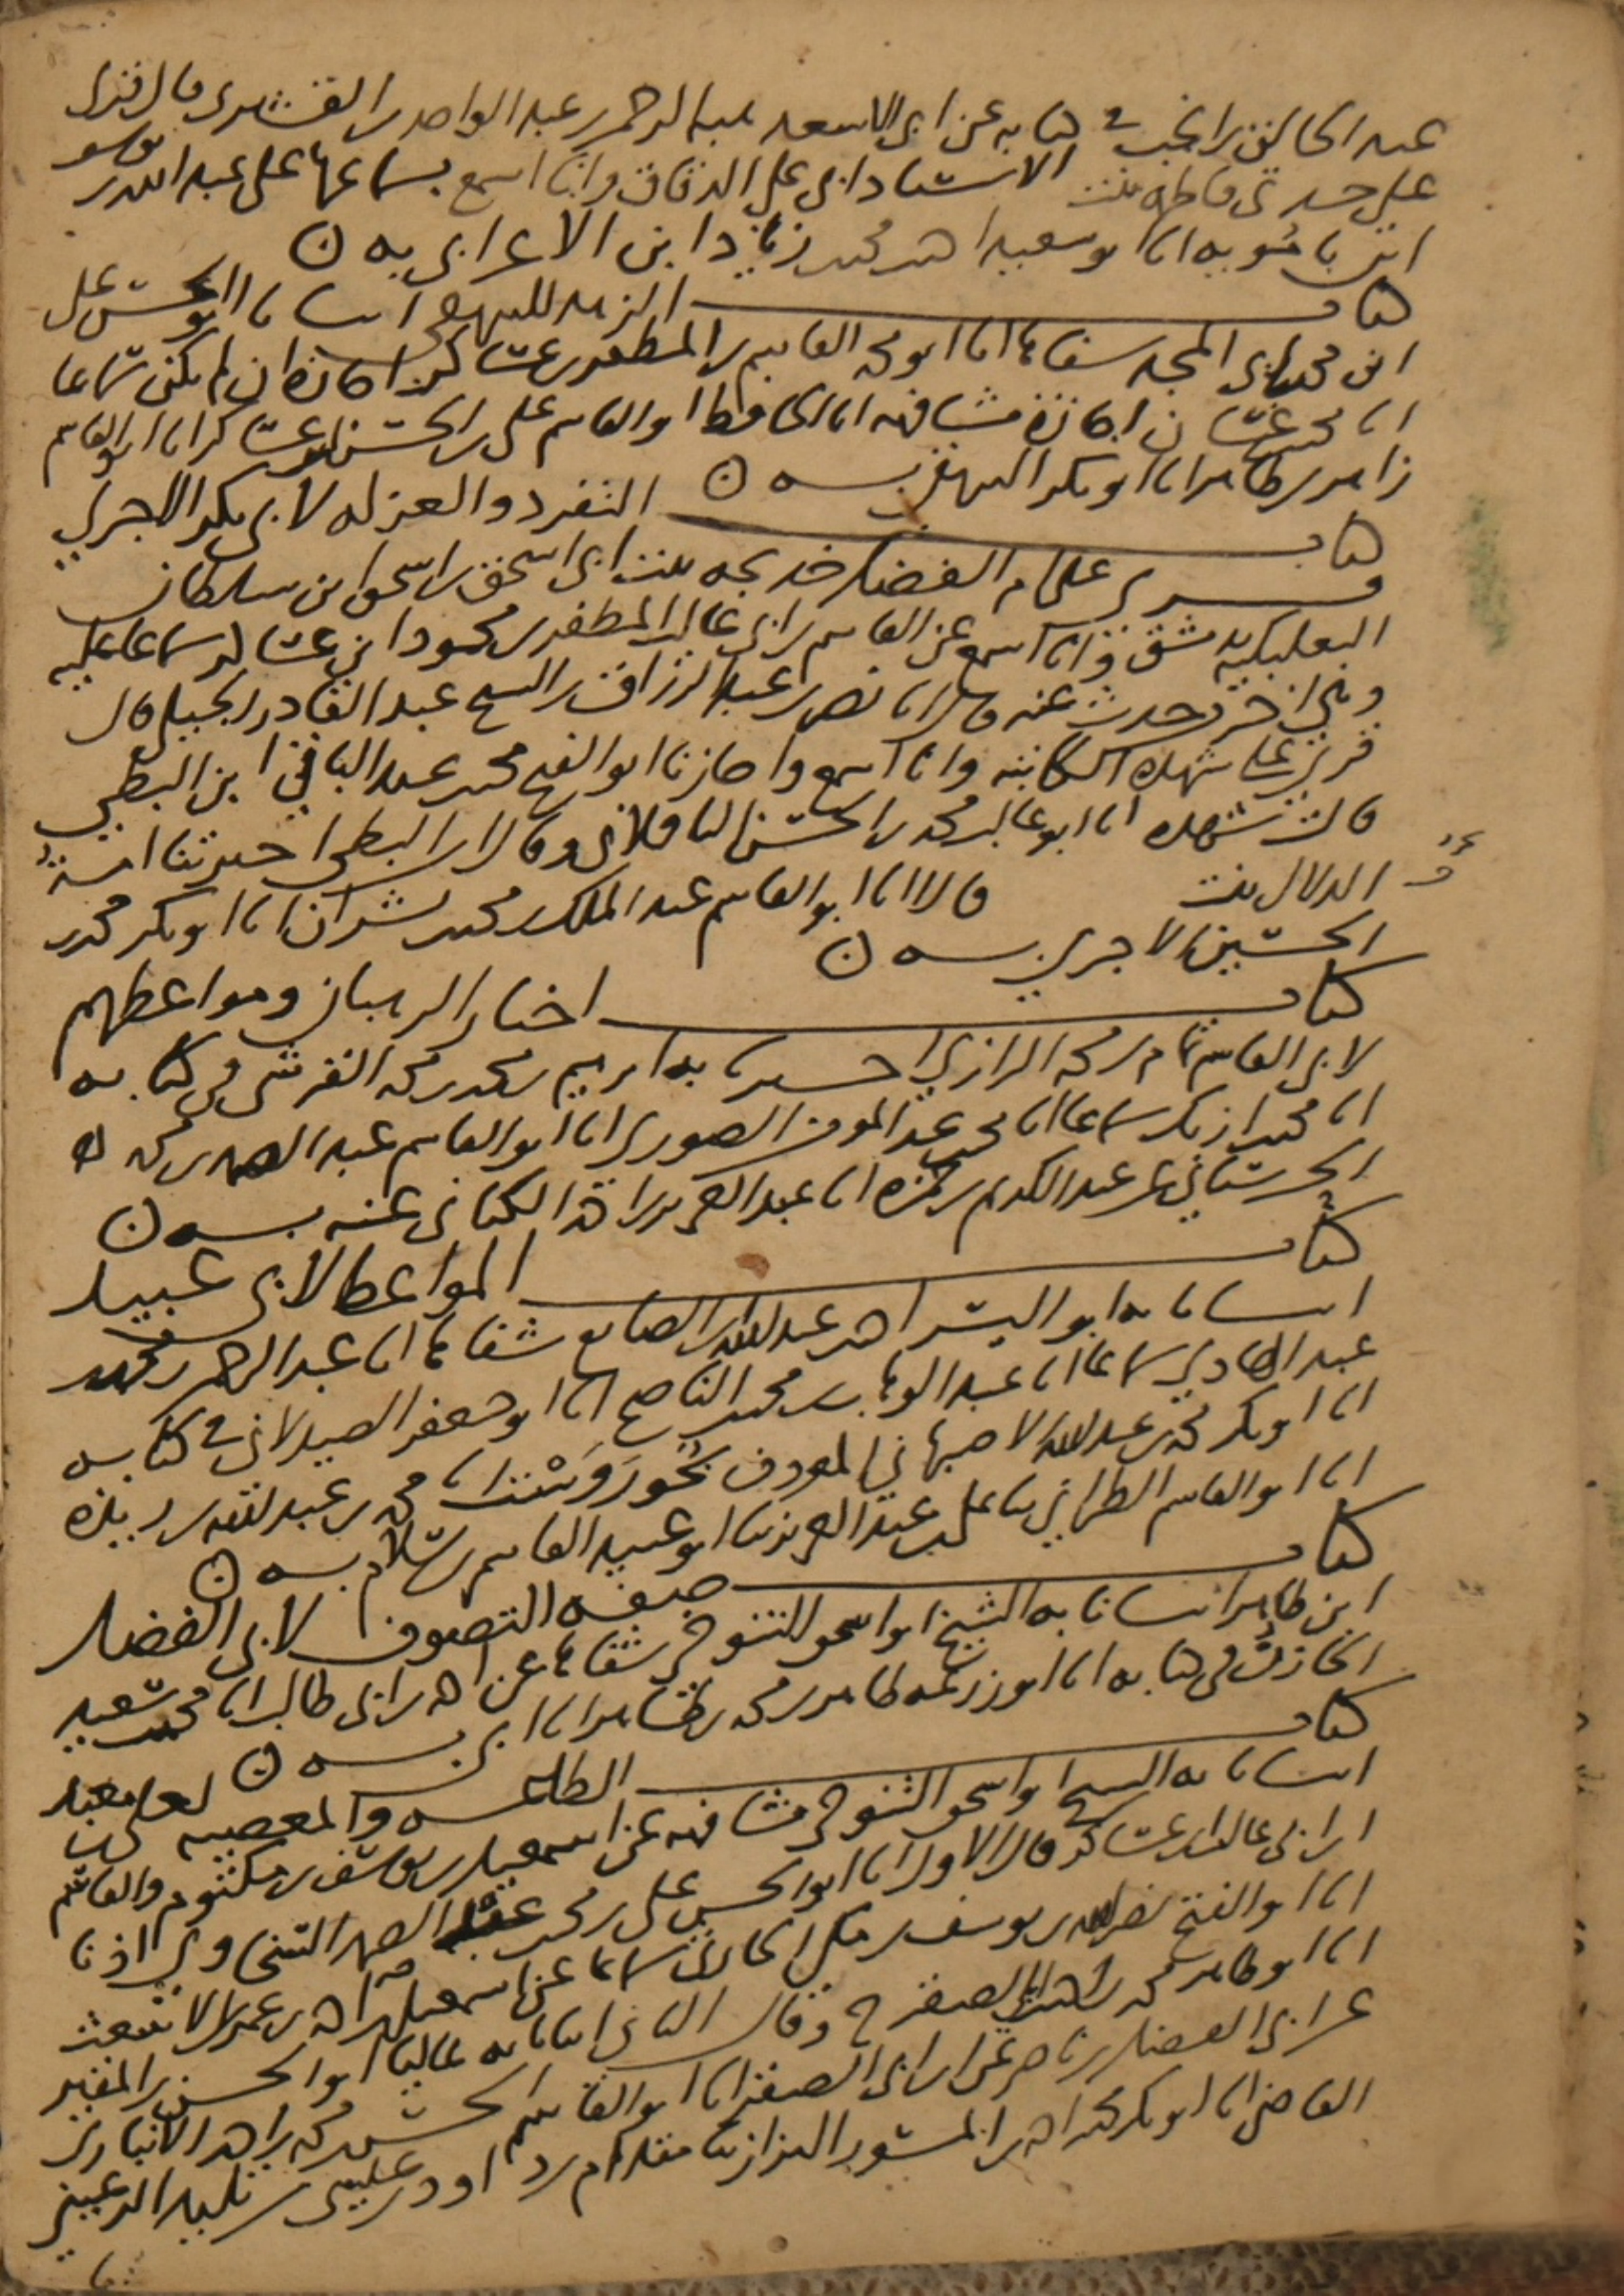 عبد الخالق بن انجب في كتابه عن ابي الاسعد هبه الرحمن بن عبد الواحد بن القشيري قال قري
على جدتي فاطمه بنت الاستاد ابي علي الدقاق وانا اسمع بسماعها على عبد الله بن يوسف
ابن بامويه انا ابو سعيد احمد بن محمد بن زياد ابن الاعرابي به ن
كتاب الزهد للبيهقي انبانا ابو الحسن علي
ابن محمد بن ابي المجد شفاها انا ابو محمد القاسم بن المظفر بن عساكر اجازة ان لم يكن سماعا
انا محمد بن غسان اجازة مشافهه انا الحافظ ابو القاسم علي بن الحسن بن عساكر انا ابو القاسم
زاهر بن طاهر انا ابو بكر البيهقي بسنده ن
كتاب التفرد والعزله لابي بكر الاجري
قري على ام الفضل خديجه بنت ابي اسحق بن اسحق ابن سلطان
البعلبكيه بدمشق وانا اسمع عن القاسم بن ابي غالب المظفر بن محمود ابن عساكر سماعا عليه
وهي اخر من حدث عنه قال انا نصر بن عبد الرزاق بن الشيخ عبد القادر الجيلي قال
قري على شهده الكاتبه وانا اسمع واجازنا ابو الفتح محمد بن عبد الباقي ابن البطي
قالت شهده انا ابو غالب محمد بن الحسن الباقلاني وقال ابن البطي اخبرتنا امة
الدلال بنت قالا انا ابو القاسم عبد الملك بن محمد بن بشران انا ابو بكر محمد بن
الحسين الاجري بسنده ن
كتاب اخبار الرهبان ومواعظهم
لابي القاسم تمام بن محمد الرازي اخبرنا به ابراهيم بن محمد بن محمد القرشي في كتابه
انا محمد بن ازبك سماعا انا محمد بن عبد المومن الصوري انا ابو القاسم عبد الصمد بن محمد
الحرستاني عن عبد الكريم بن حمزه انا عبد العزيز بن احمد الكتاني عنه بسنده ن
كتاب المواعظ لابي عبيد
انبانا به ابو اليسر احمد بن عبد الله بن الصائغ شفاها انا عبد الرحمن بن محمد بن
عبد الهادي سماعا انا عبد الوهاب بن محمد الناصح انا ابو جعفر الصيدلاني في كتابه
انا ابو بكر محمد بن عبد الله الاصبهاني المعروف بخوروست انا محمد بن عبد الله بن ريذه
انا ابو القاسم الطبراني ثنا علي بن عبد العزيز ثنا ابو عبيد القاسم بن سلام بسنده ن
كتاب صفة التصوف لابي الفضل
ابن طاهر انبانا به الشيخ ابو اسحق التنوخي شفاها عن احمد بن ابي طالب انا محمد بن سعيد
الخازن في كتابه انا ابو زرعه طاهر بن محمد بن طاهر انا ابي بسنده ن
كتاب الطاعه والمعصيه لعلي بن معبد
انبانا به الشيخ ابو اسحق التنوخي مشافهه عن اسمعيل بن يوسف بن مكتوم والقاسم
ابن ابي غالب بن عساكر قال الاول انا ابو الحسن علي بن محمد بن عبد الصمد السخاوي اذنا
انا ابو الفتح نصر الله بن يوسف بن مكي الحارثي سماعا عن اسمعيل بن احمد بن عمر بن الاشعث
انا ابو طاهر محمد بن احمد بن ابي الصقر ح وقال الثاني انبانا به عاليا ابو الحسن بن المقير
عن ابي الفضل بن ناصر عن ابن ابي الصقر انا ابو القاسم الحسن بن محمد بن احمد الانباري
القاضي انا ابو بكر محمد بن احمد بن المسور البزاز ثنا مقدام بن داود بن عيسى بن تليد الرعيني
ثنا